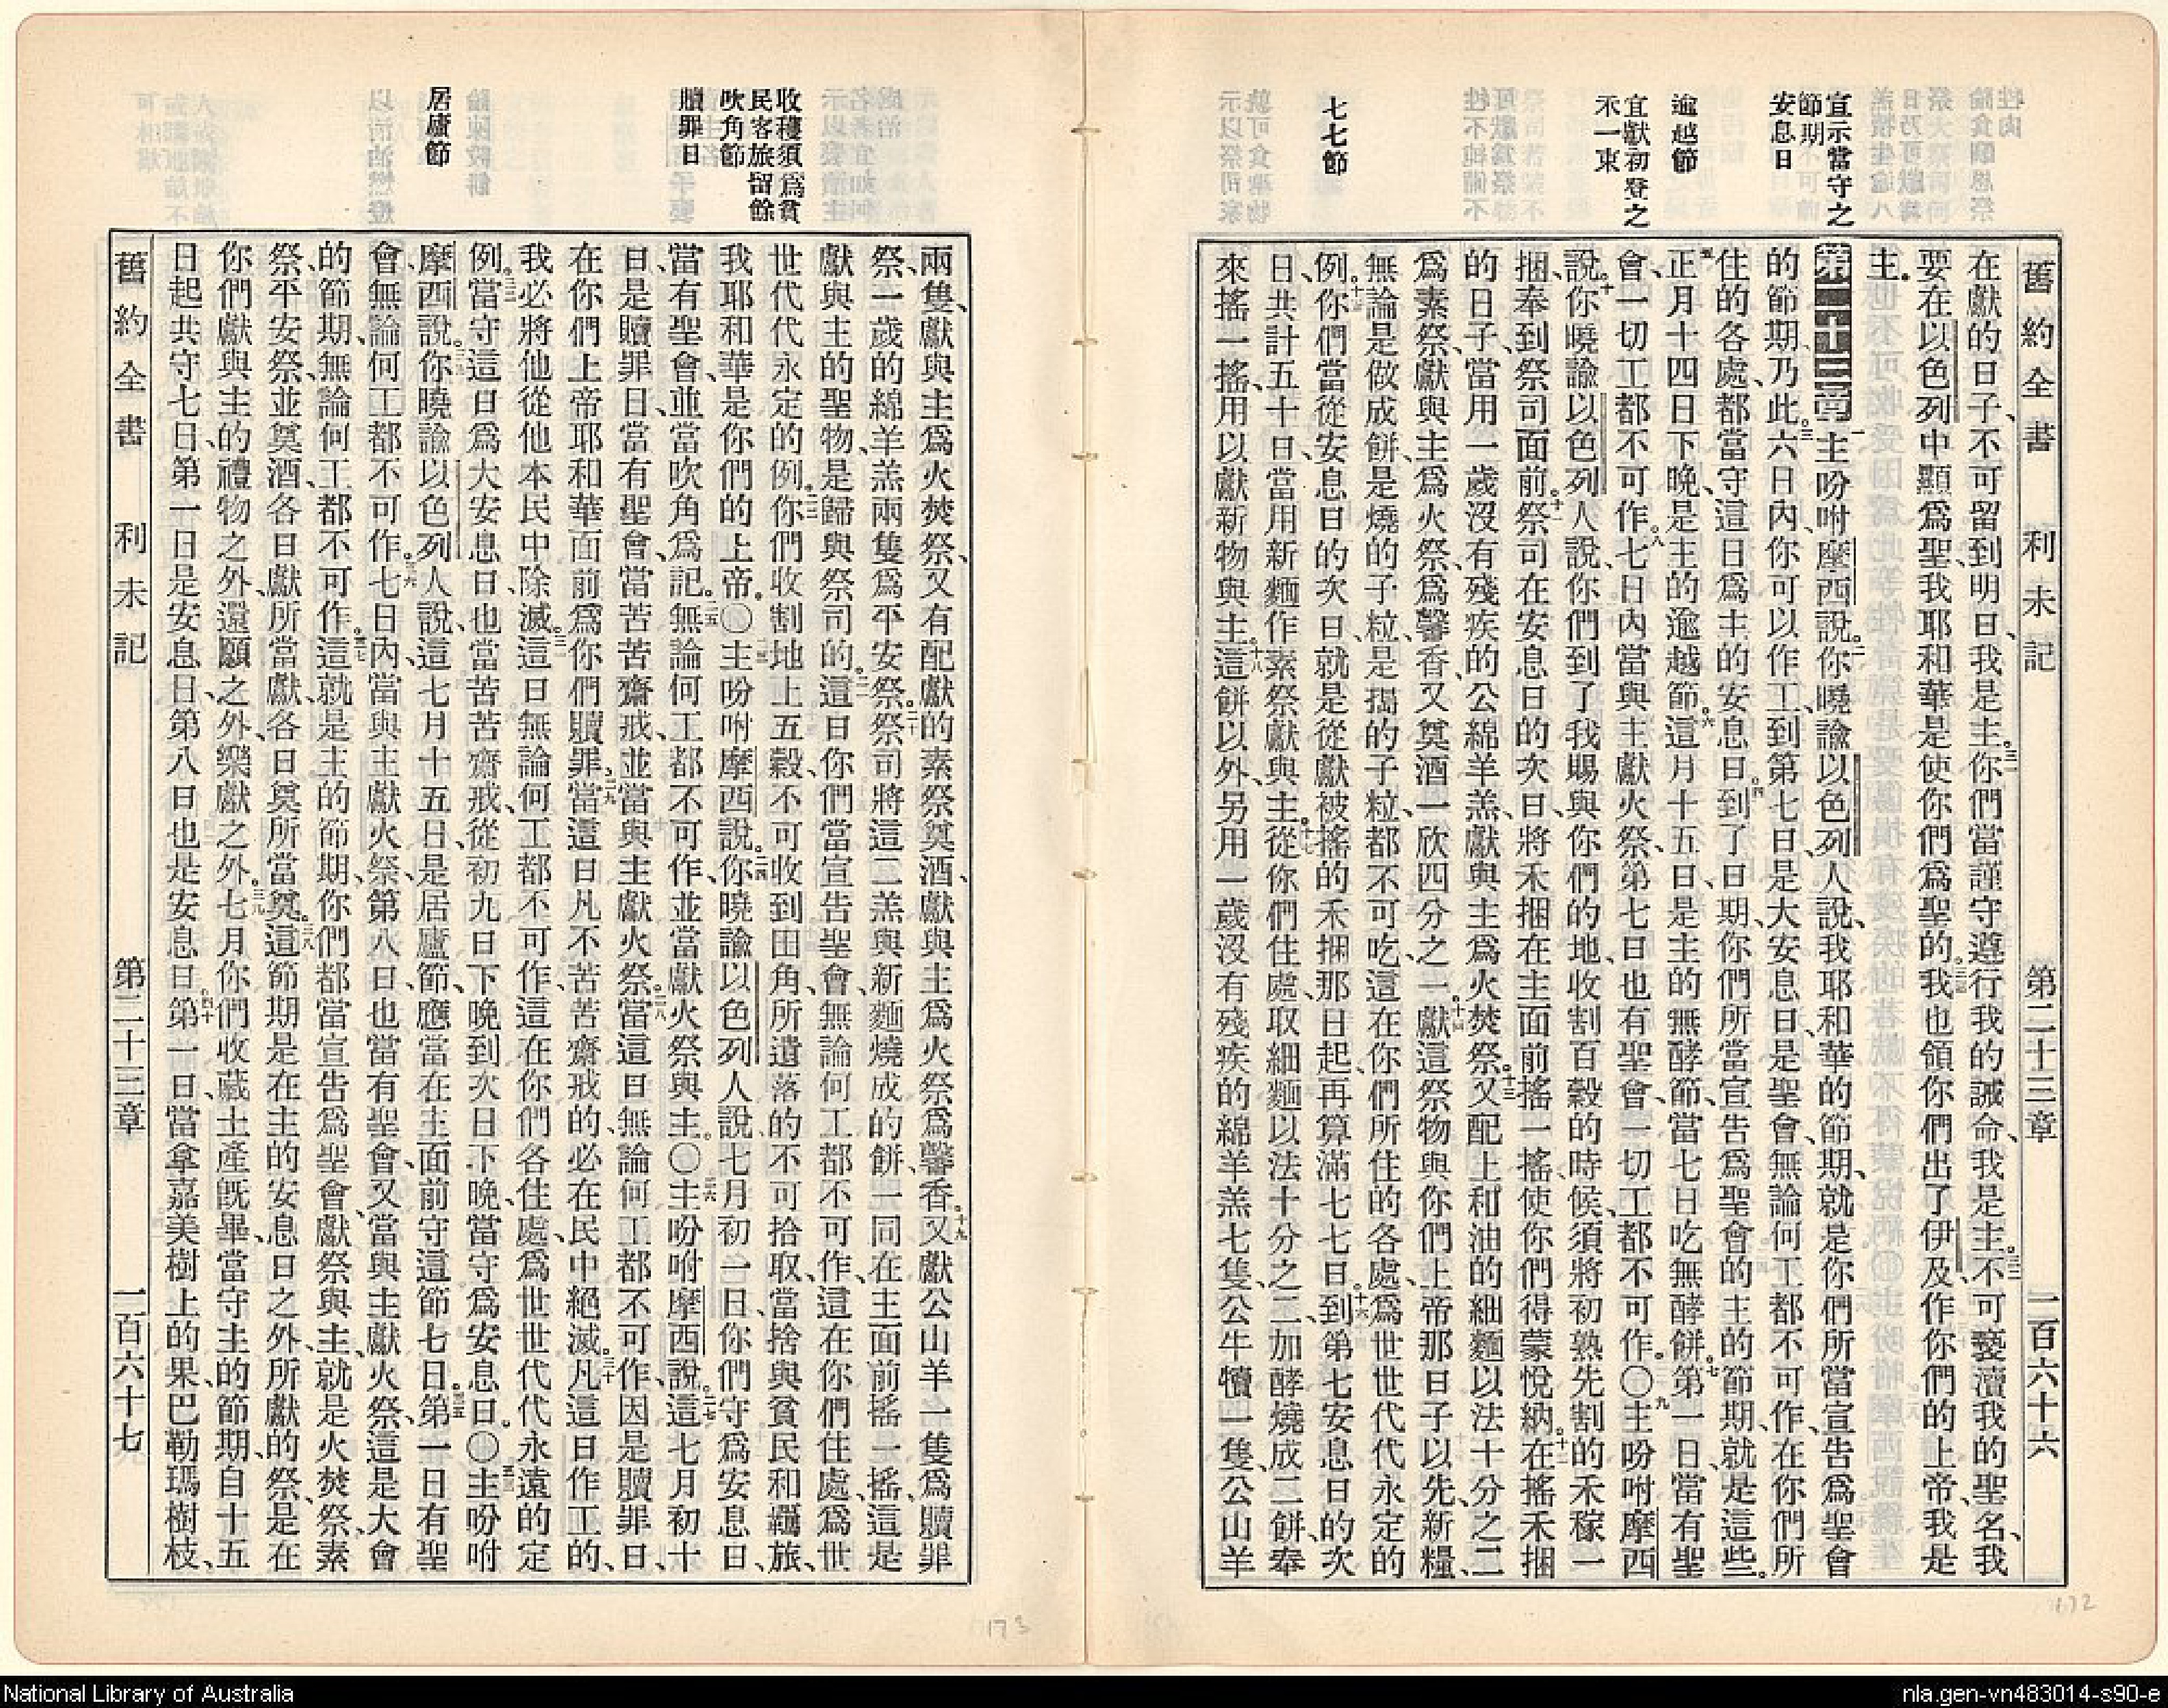 宣示當守之
節期
安息日
逾越節
宜獻初登之
禾一束
七七節
舊約全書 利未記 第二十三章 一百六十六
在獻的日子、不可留到明日、我是主。三一你們當謹守遵行我的誡命、我是主。三二不可褻瀆我的聖名、我
要在以色列中顯爲聖、我耶和華是使你們爲聖的。三三我也領你們出了伊及、作你們的上帝、我是
主。
第二十三章 一主吩咐摩西說。二你曉諭以色列人說、我耶和華的節期、就是你們所當宣告爲聖會
的節期、乃此。三六日內、你可以作工、到第七日、是大安息日、是聖會、無論何工都不可作、在你們所
住的各處、都當守這日爲主的安息日。四到了日期、你們所當宣告爲聖會的主的節期、就是這些。
五正月十四日下晚、是主的逾越節。六這月十五日、是主的無酵節、當七日吃無酵餅。七第一日當有聖
會、一切工都不可作。八七日內當與主獻火祭、第七日也有聖會、一切工都不可作。〇九主吩咐摩西
說。十你曉諭以色列人說、你們到了我賜與你們的地、收割百穀的時候、須將初熟先割的禾稼一
捆、奉到祭司面前。十一祭司在安息日的次日、將禾捆在主面前搖一搖、使你們得蒙悅納。十二在搖禾捆
的日子、當用一歲沒有殘疾的公綿羊羔、獻與主爲火焚祭。十三又配上和油的細麵以法十分之二
爲素祭、獻與主爲火祭、爲馨香、又奠酒一欣四分之一。十四獻這祭物與你們上帝那日子以先、新糧、
無論是做成餅、是燒的子粒、是搗的子粒、都不可吃、這在你們所住的各處、爲世世代代永定的
例。十五你們當從安息日的次日、就是從獻被搖的禾捆那日起、再算滿七七日。十六到第七安息日的次
日、共計五十日、當用新麵作素祭獻與主。十七從你們住處、取細麵以法十分之二、加酵燒成二餅、奉
來搖一搖、用以獻新物與主。十八這餅以外、另用一歲沒有殘疾的綿羊羔七隻、公牛犢一隻、公山羊
收穫須爲貧
民客旅留餘
吹角節
贖罪日
居廬節
兩隻、獻與主爲火焚祭、又有配獻的素祭奠酒、獻與主爲火祭爲馨香。十九又獻公山羊一隻爲贖罪
祭、一歲的綿羊羔兩隻爲平安祭。二十祭司將這二羔與新麵燒成的餅、一同在主面前搖一搖、這是
獻與主的聖物、是歸與祭司的。二一這日你們當宣告聖會、無論何工都不可作、這在你們住處、爲世
世代代永定的例。二二你們收割地上五穀、不可收到田角、所遺落的不可拾取、當捨與貧民和羈旅、
我耶和華是你們的上帝。〇二三主吩咐摩西說。二四你曉諭以色列人說、七月初一日、你們守爲安息日、
當有聖會、並當吹角爲記。二五無論何工都不可作、並當獻火祭與主。〇二六主吩咐摩西說。二七這七月初十
日是贖罪日、當有聖會、當苦苦齋戒、並當與主獻火祭。二八當這日無論何工都不可作、因是贖罪日、
在你們上帝耶和華面前爲你們贖罪。二九當這日凡不苦苦齋戒的、必在民中絕滅。三十凡這日作工的、
我必將他從他本民中除滅。三一這日無論何工都不可作、這在你們各住處、爲世世代代永遠的定
例。三二當守這日爲大安息日也、當苦苦齋戒、從初九日下晚到次日下晚、當守爲安息日。〇三三主吩咐
摩西說。三四你曉諭以色列人說、這七月十五日是居廬節、應當在主面前守這節七日。三五第一日有聖
會、無論何工都不可作。三六七日內、當與主獻火祭、第八日也當有聖會、又當與主獻火祭、這是大會
的節期、無論何工都不可作。三七這就是主的節期、你們都當宣告爲聖會、獻祭與主、就是火焚祭、素
祭、平安祭、並奠酒、各日獻所當獻、各日奠所當奠。三八這節期是在主的安息日之外、所獻的祭、是在
你們獻與主的禮物之外、還願之外、樂獻之外。三九七月你們收藏土產既畢、當守主的節期、自十五
日起、共守七日、第一日是安息日、第八日也是安息日。四十第一日當拿嘉美樹上的果、巴勒瑪樹枝、
舊約全書 利未記 第二十三章 一百六十七
173
172
National Library of Australia
nla.gen-vn483014-s90-e